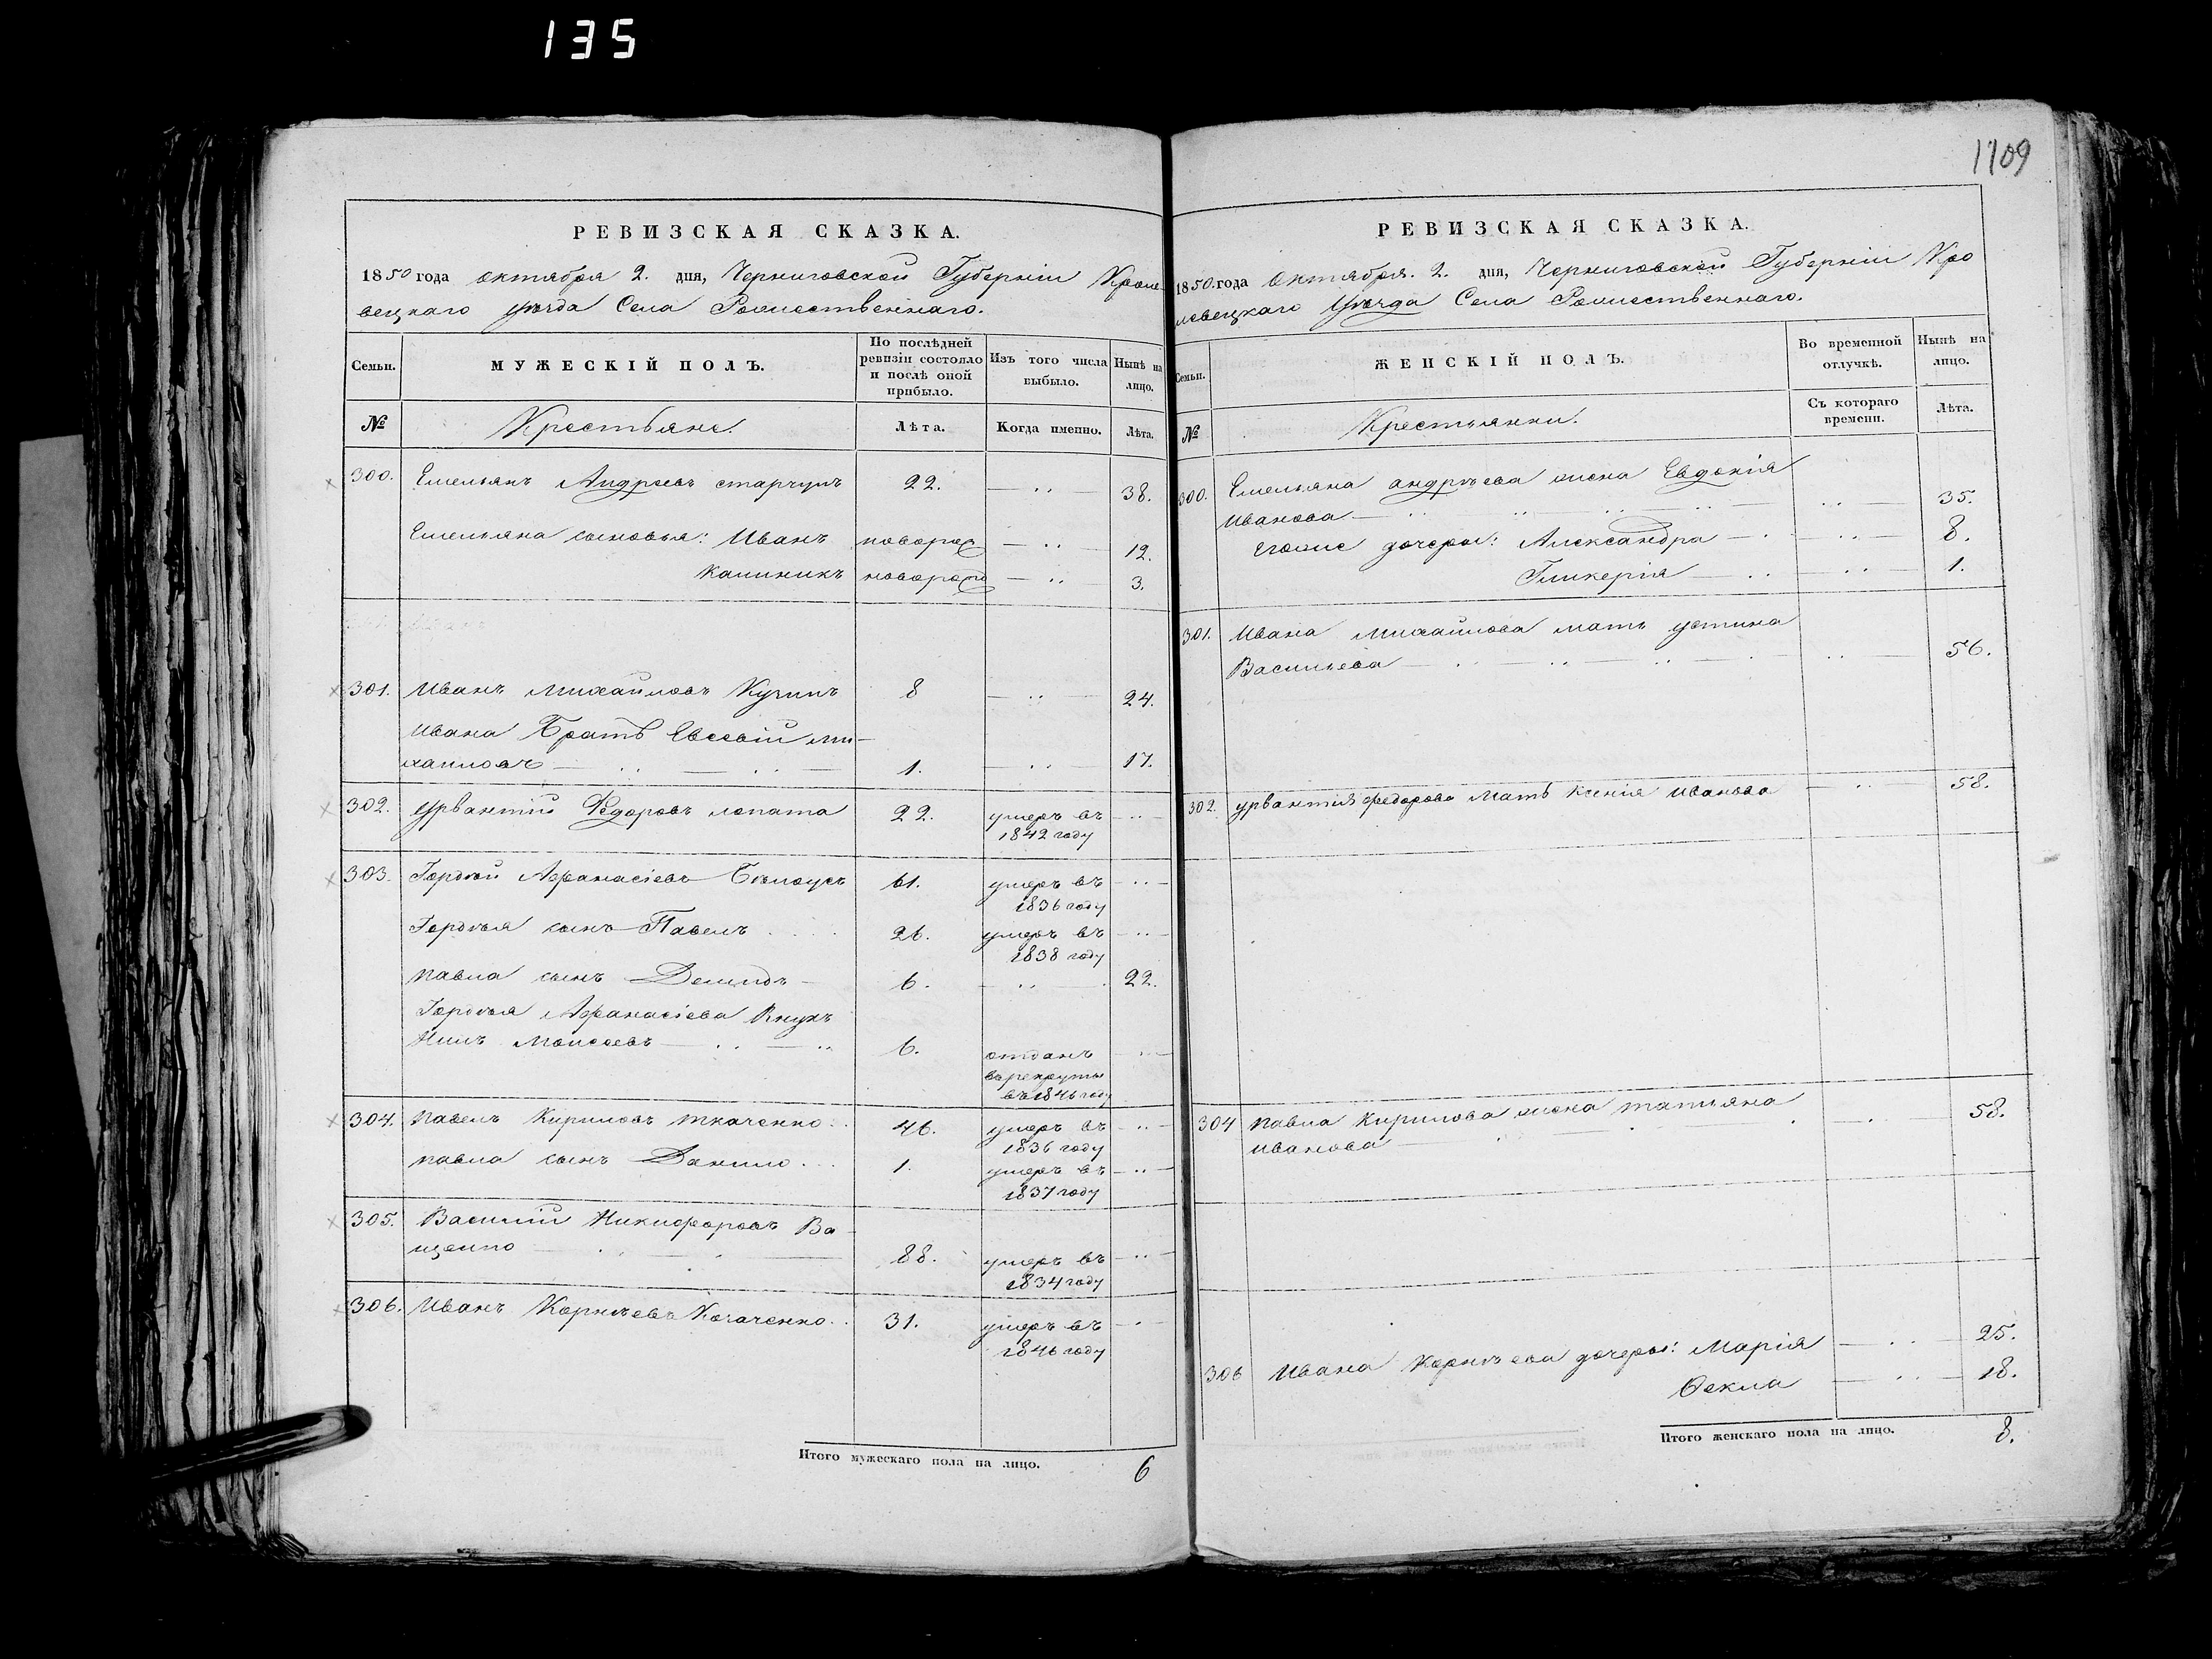 135
1109
РЕВИЗСКАЯ СКАЗКА.
1850 года октября 2. дня, Черниговской Губерніи Кроле-
вецкаго уѣзда Села Рождественнаго.
Семьи.
МУЖЕСКІЙ ПОЛЪ.
По послѣдней ревизіи состояло и послѣ оной прибыло.
Изъ того числа выбыло.
Нынѣ на лицо.
№
Крестьяне.
Лѣта.
Когда именно.
Лѣта.
300. Емельянъ Андреевъ 22. 38.
Емельяна сыновья: Иванъ новорож 12.
Калиникъ новорожд 3.
301. Иванъ Михайловъ 8 24.
Ивана Братъ Евсевій Ми-
хайловъ 1. 17.
302. Урвантій Федоровъ лопата 22. умеръ въ
1842 году
303. Гордѣй Афанасіевъ Бѣлоусъ 61. умеръ въ
1836 году
Гордѣя сынъ Павелъ 26. умеръ въ
1838 году
Павла сынъ Демидъ 6. 22.
Гордѣя Афанасіева Внукъ
Нилъ Моисеевъ 6. отданъ
въ рекруты
въ 1846 году
304. Павелъ Кириловъ Ткаченко 46. умеръ въ
1836 году
Павла сынъ Данило 1. умеръ въ
1837 году
305. Василій Никифоровъ Ва-
щенко 88. умеръ въ
1834 году
306. Иванъ Корнѣевъ 31. умеръ въ
1846 году
Итого мужескаго пола на лицо. 6
РЕВИЗСКАЯ СКАЗКА.
1850. года Октября. 2. дня, Черниговской Губерніи Кро
левецкаго Уѣзда Села Рождественнаго.
Семьи.
ЖЕНСКІЙ ПОЛЪ.
Во временной отлучкѣ.
Нынѣ на лицо.
№
Крестьянки.
Съ котораго времени.
Лѣта.
300. Емельяна андрѣева жена Евдокія
Иванова 35.
Егоже дочери: Александра 8.
Гликерія 1.
301. Ивана Михайлова мать устина
Васильева 56.
302. урвантія федорова Мать Ксенія Иванова 58.
304 Павла Кирилова жена татіяна
иванова 58.
306 Ивана Корнѣева дочери: Марія 25.
Ѳекла 18.
Итого женскаго пола на лицо. 8.